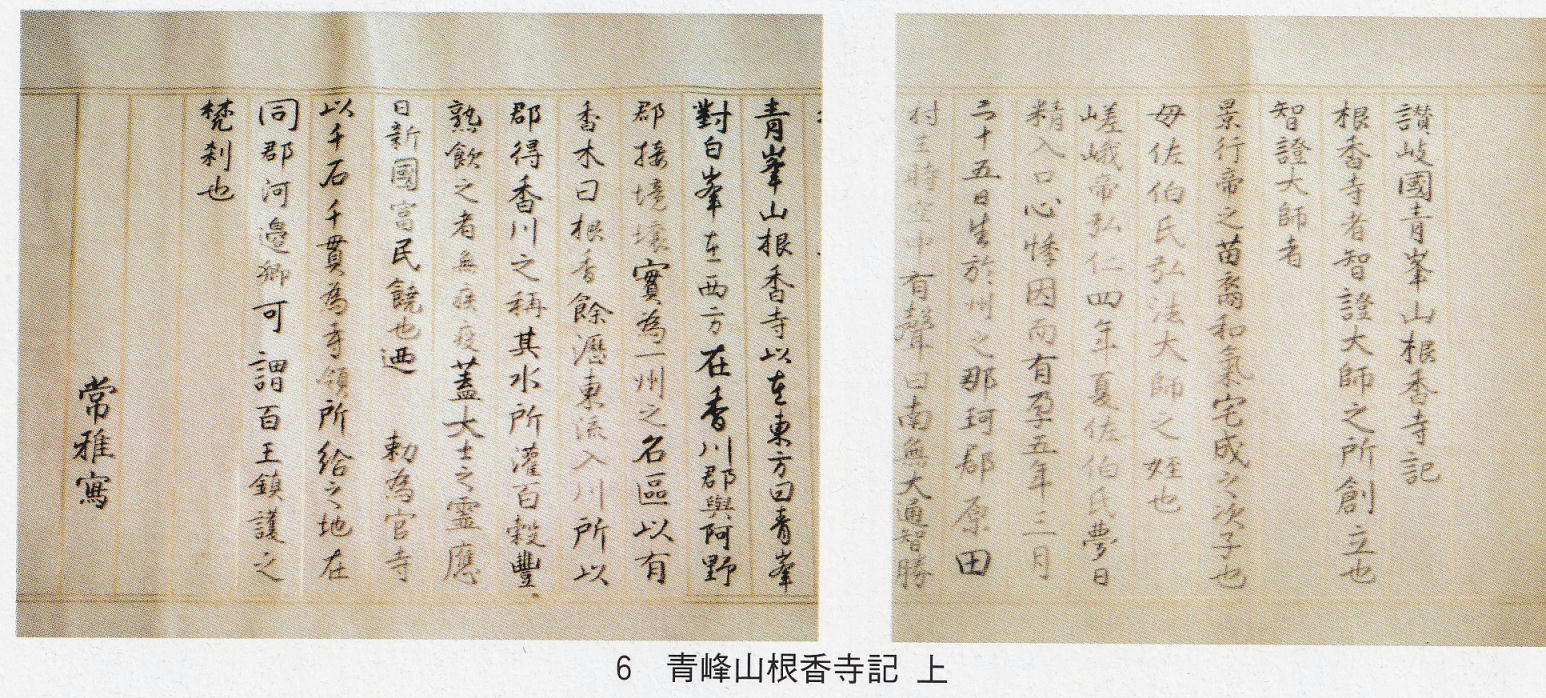 讃岐國青峯山根香寺記
根香寺者智證大師之所創立也
智證大師者
景行帝之苗裔和氣宅成之次子也
母佐伯氏弘法大師之姪也
嵯峨帝弘仁四年夏佐伯氏夢日
精入口心悸因而有孕五年三月
二十五日生於州之那珂郡原田
村主時空中有聲曰南無大通智勝
青峯山根香寺以在東方曰青峯
對白峯在西方在香川郡與阿野
郡接境壤實為一州之名區以有
香木曰根香餘瀝東流入川所以
郡得香川之稱其水所灌百穀豐
熟飲之者無疾疫蓋大士之靈應
日新國富民饒也迺 勅為官寺
以千石千貫為寺領所給之地在
同郡河邊鄉可謂百王鎮護之
梵刹也
常雅寫
6 青峰山根香寺記 上